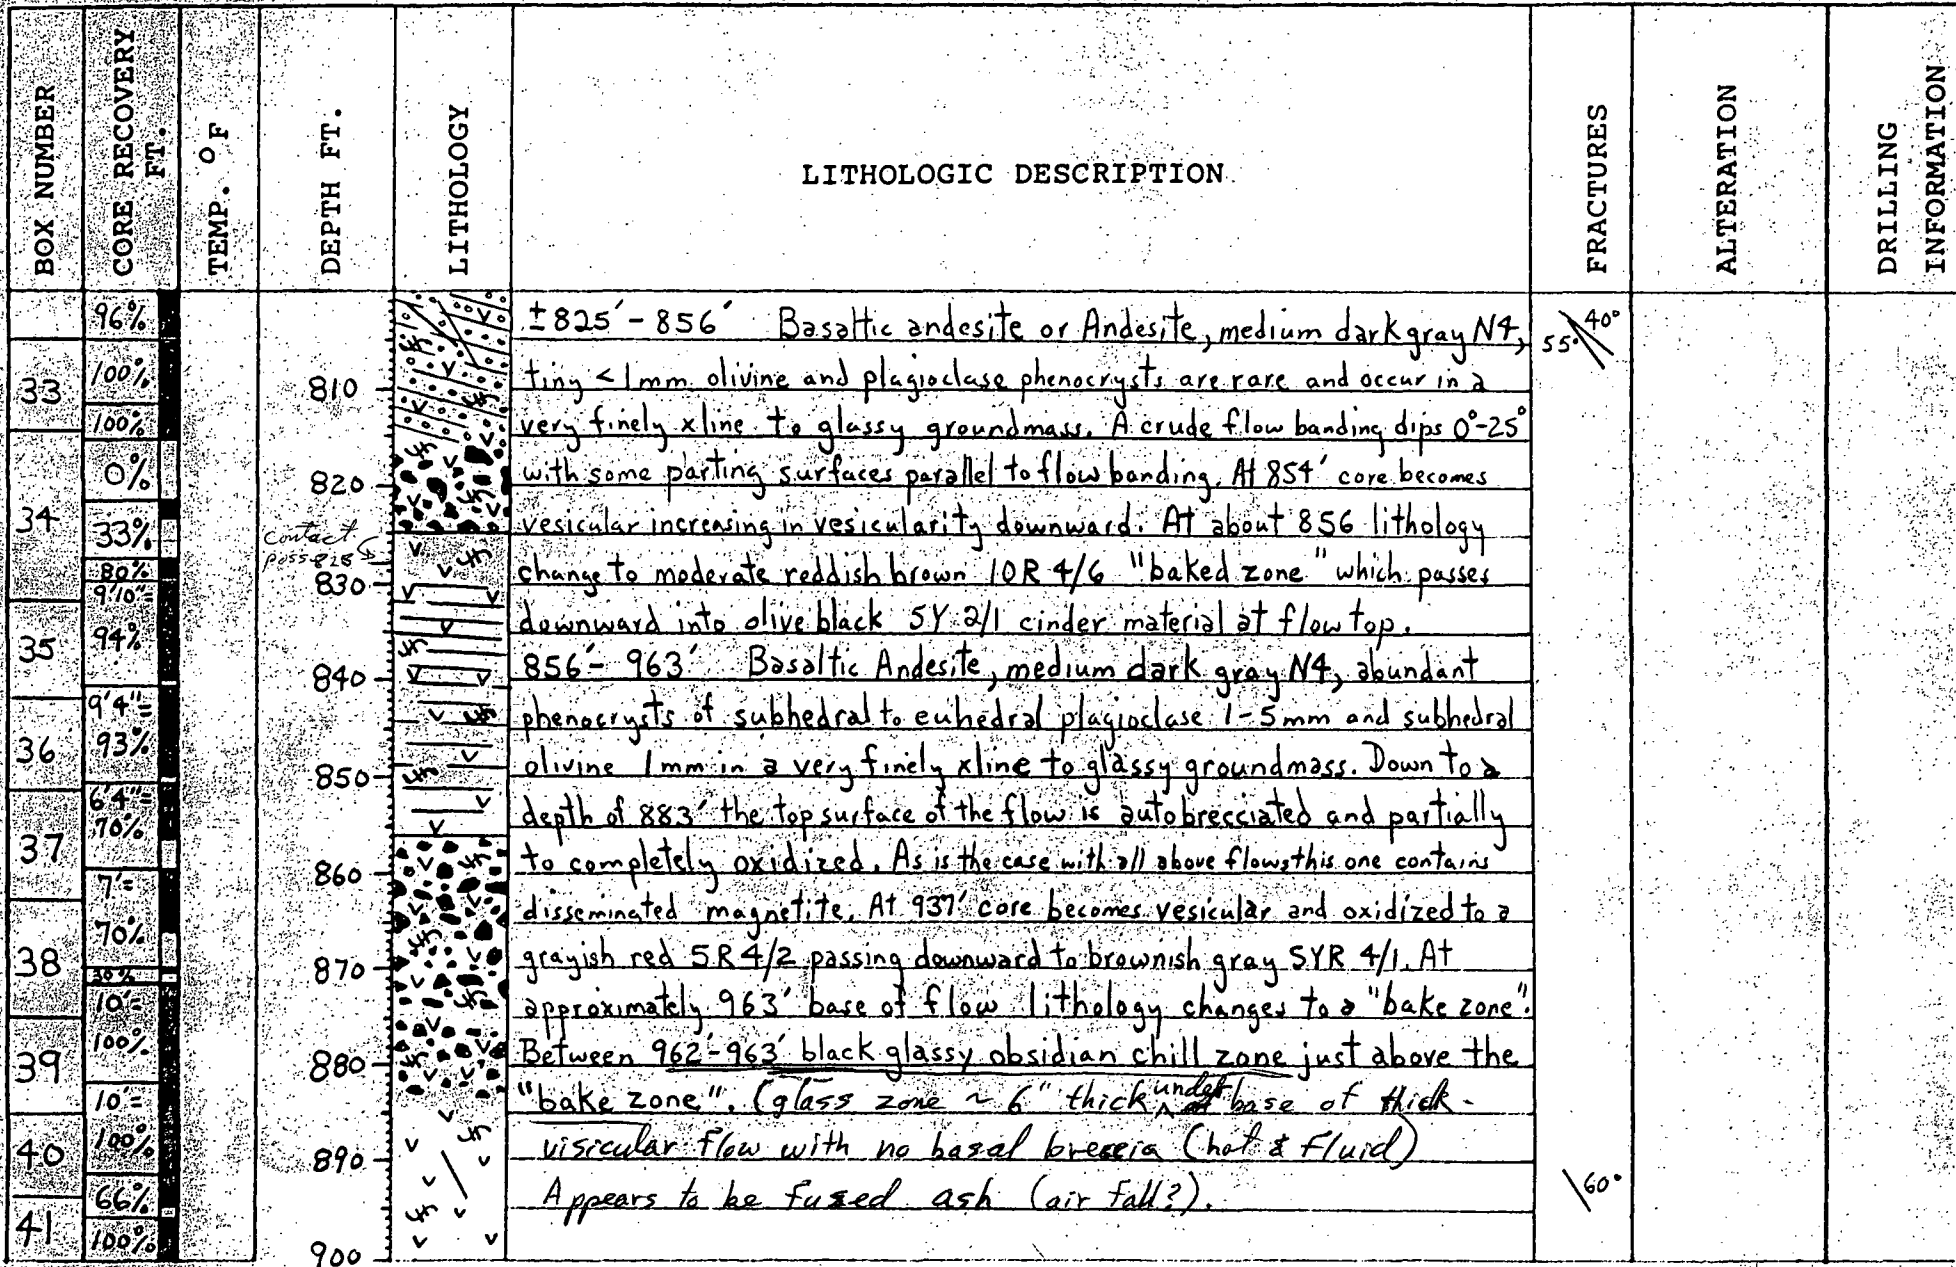 BOX NUMBER
CORE RECOVERY FT.
TEMP. °F
DEPTH FT.
LITHOLOGY
LITHOLOGIC DESCRIPTION
FRACTURES
ALTERATION
DRILLING INFORMATION
33
34
35
36
37
38
39
40
41
96%
100%
100%
0%
33%
80%
9'10"=
94%
9'4"=
93%
6'4"=
70%
7'=
70%
30%
10'=
100%
10'=
100%
66%
100%
810
820
contact
poss 828
830
840
850
860
870
880
890
900
±825'-856' Basaltic andesite or Andesite, medium dark gray N4,
tiny <1mm olivine and plagioclase phenocrysts are rare and occur in a
very finely xline to glassy groundmass. A crude flow banding dips 0°-25°
with some parting surfaces parallel to flow banding. At 854' core becomes
vesicular increasing in vesicularity downward. At about 856 lithology
change to moderate reddish brown 10R 4/6 "baked zone" which passes
downward into olive black 5Y 2/1 cinder material at flow top.
856'-963' Basaltic Andesite, medium dark gray N4, abundant
phenocrysts of subhedral to euhedral plagioclase 1-5mm and subhedral
olivine 1mm in a very finely xline to glassy groundmass. Down to a
depth of 883' the top surface of the flow is autobrecciated and partially
to completely oxidized. As is the case with all above flows this one contains
disseminated magnetite. At 937' core becomes vesicular and oxidized to a
grayish red 5R 4/2 passing downward to brownish gray 5YR 4/1. At
approximately 963' base of flow lithology changes to a "bake zone".
Between 962'-963' black glassy obsidian chill zone just above the
"bake zone". (glass zone ~ 6" thick under base of thick
visicular flow with no basal breccia (hot & fluid)
Appears to be fused ash (air fall?).
55° 40°
60°